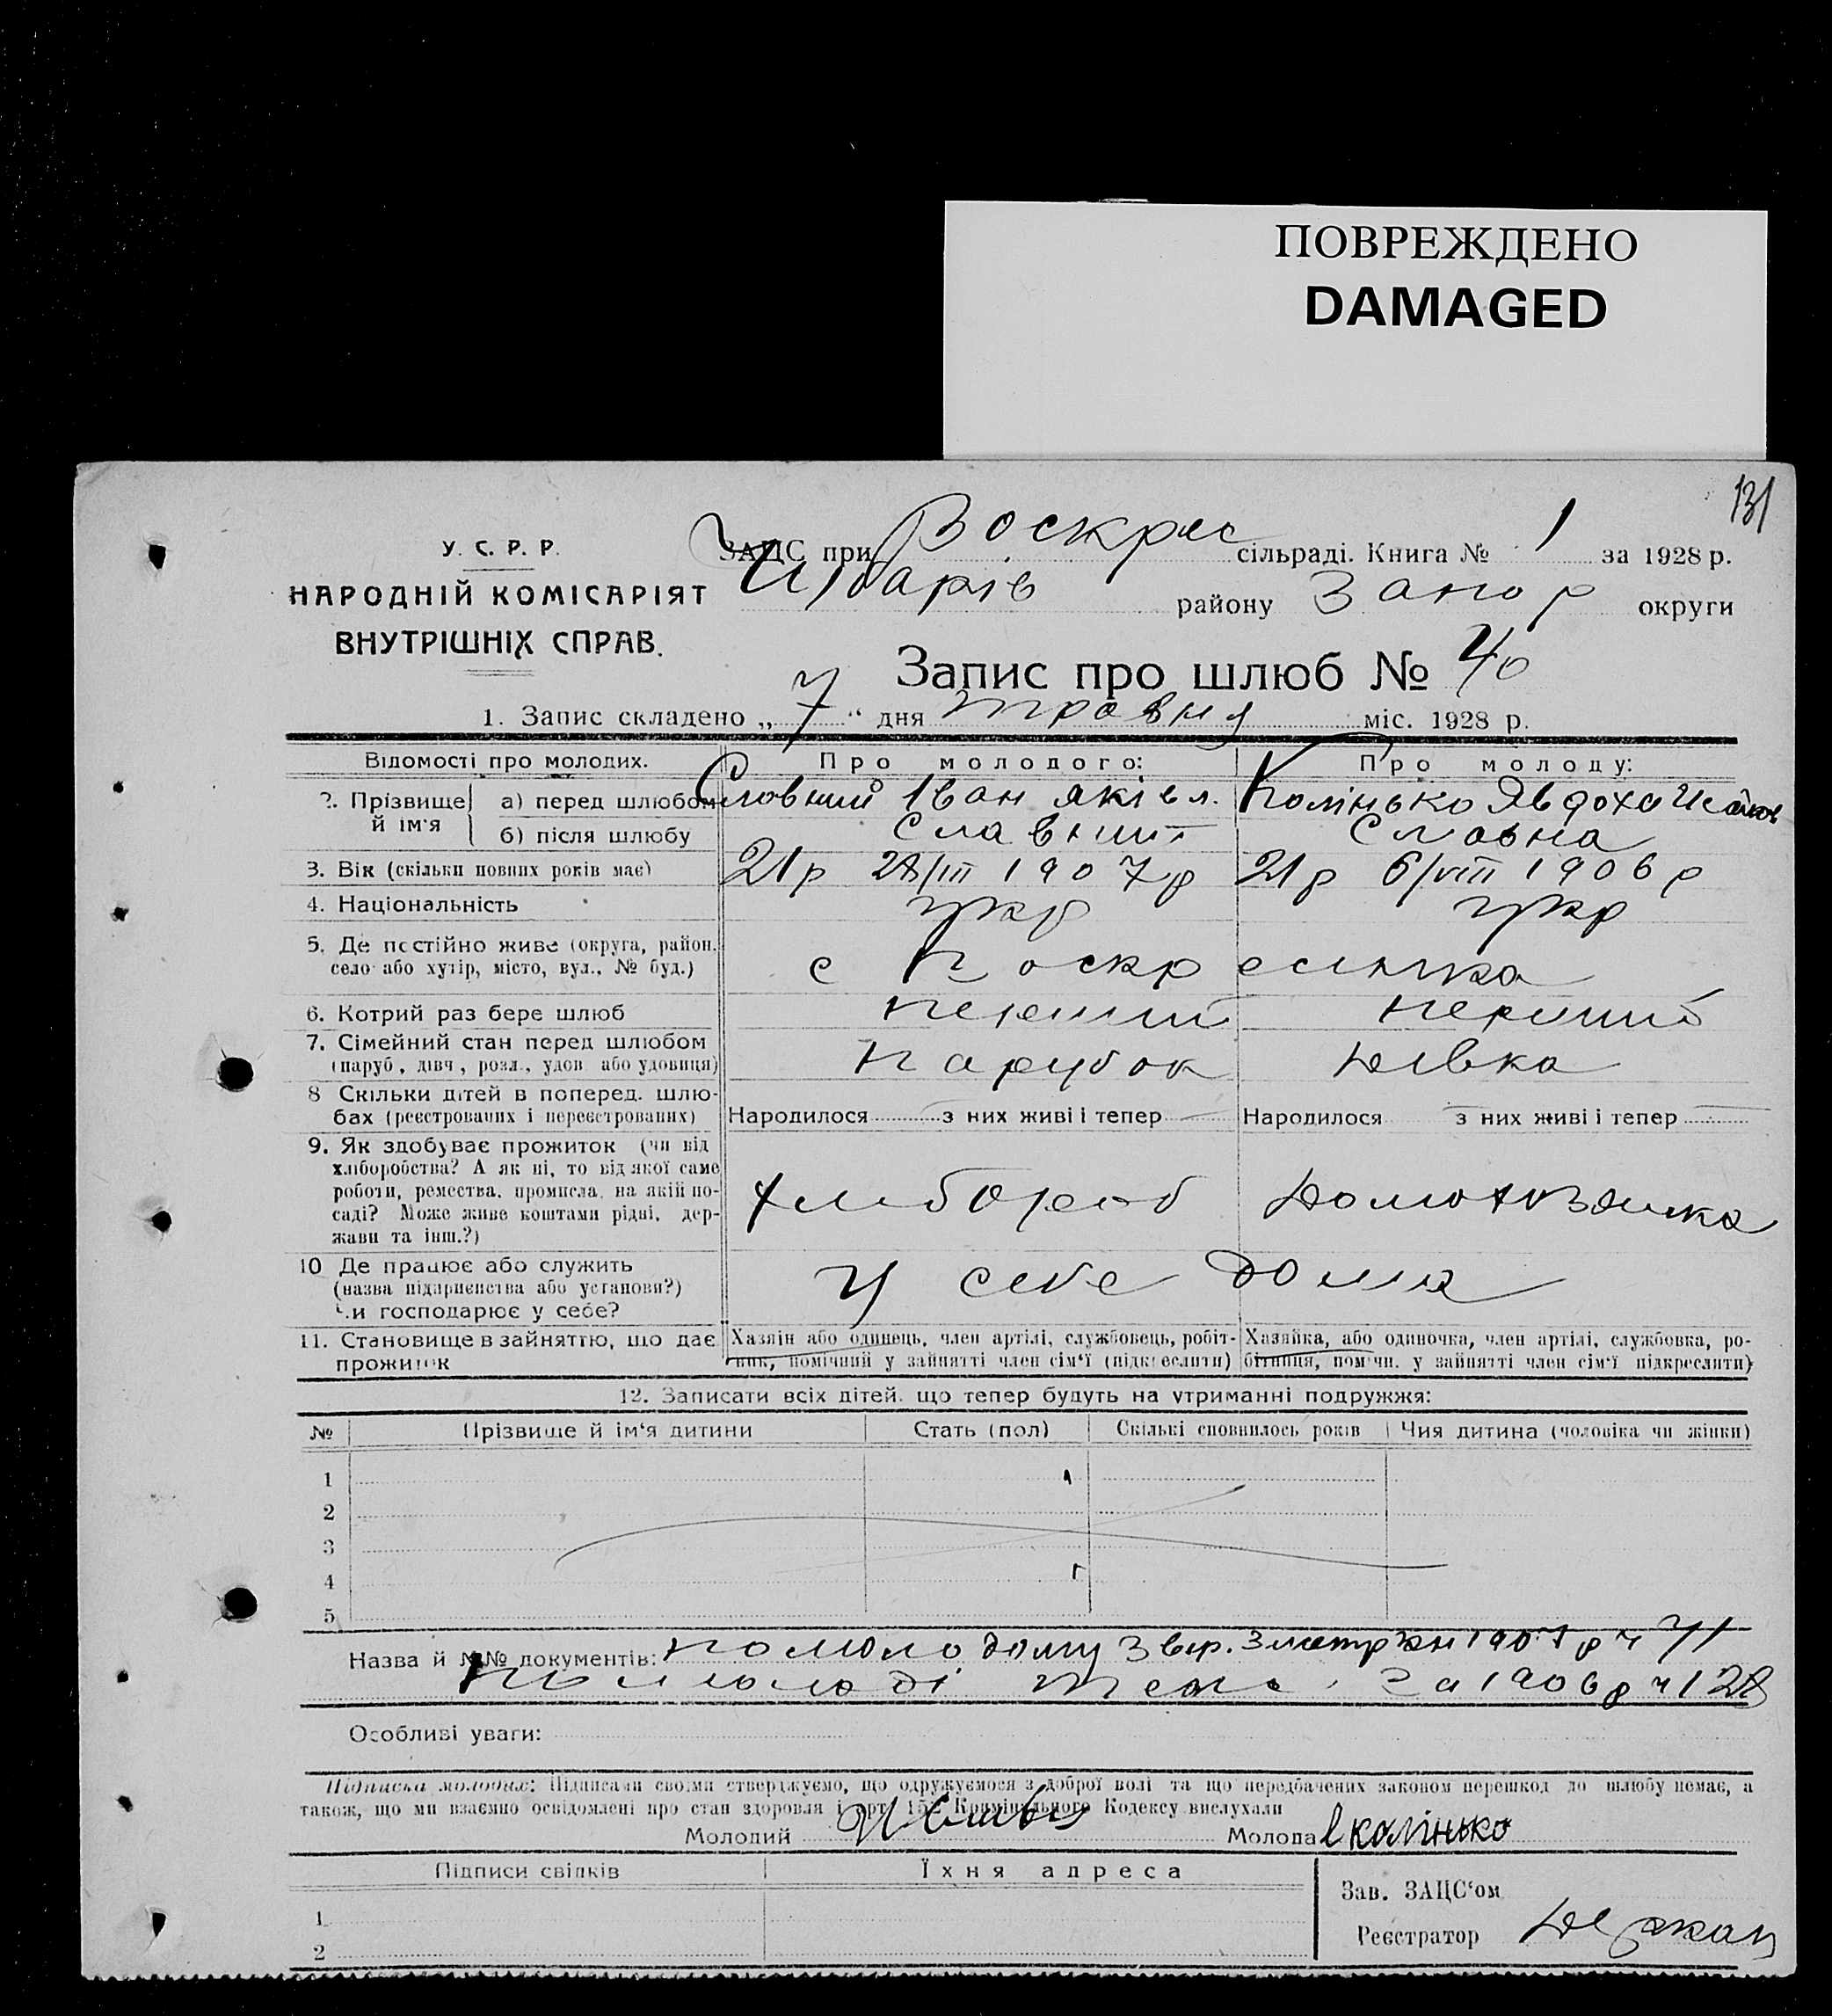 ПОВРЕЖДЕНО
DAMAGED
131
У. С. Р. Р.
НАРОДНІЙ КОМІСАРІЯТ
ВНУТРІШНІХ СПРАВ.
ЗАЦС при Воскрес сільраді. Книга № 1 за 1928 р.
району Запор округи
Запис про шлюб № 40
1. Запис складено „ 7 “ дня травня міс. 1928 р.
Відомості про молодих. Про молодого: Про молоду:
2. Прізвище й ім'я а) перед шлюбом Славний Іван Яківл. Калінько Явдоха
б) після шлюбу Славний Славна
3. Вік (скільки повних років має) 21 р 28/III 1907 р 21 р 6/VIII 1906 р
4. Національність укр укр
5. Де постійно живе (округа, район,
село або хутір, місто, вул., № буд.) с Воскресенка
6. Котрий раз бере шлюб перший перший
7. Сімейний стан перед шлюбом
(паруб., дівч., розл., удов. або удовиця) парубок дівка
8 Скільки дітей в поперед. шлю-
бах (реєстрованих і нереєстрованих) Народилося з них живі і тепер Народилося з них живі і тепер
9. Як здобуває прожиток (чи від
хліборобства? А як ні, то від якої саме
роботи, ремества, промисла, на якій по-
саді? Може живе коштами рідні, дер-
жави та інш.?) хлібороб домохозяйка
10 Де працює або служить
(назва підприємства або установи?)
Чи господарює у себе? у себе дома
11. Становище в зайняттю, що дає
прожиток
Хазяін або одинець, член артілі, службовець, робіт-
ник, помічний у зайнятті член сім'ї (підкреслити)
Хазяйка, або одиночка, член артілі, службовка, ро-
бітниця, помічн. у зайнятті член сім'ї підкреслити)
12. Записати всіх дітей, що тепер будуть на утриманні подружжя:
№ Прізвище й ім'я дитини Стать (пол) Скількі сповнилось років Чия дитина (чоловіка чи жінки)
1
2
3
4
5
Назва й №№ документів: по молодому 1907 р ч 71
по молоді за 1906 р ч 128
Особливі уваги:
Підписка молодих: Підписами своїми стверджуємо, що одружуємося з доброї волі та що передбачених законом перешкод до шлюбу немає, а
також, що ми взаємно освідомлені про стан здоровля і арт. 15 Кримінального Кодексу вислухали
Молодий Молода Калінько
Підписи свідків Їхня адреса
Зав. ЗАЦС'ом
1
Реєстратор
2